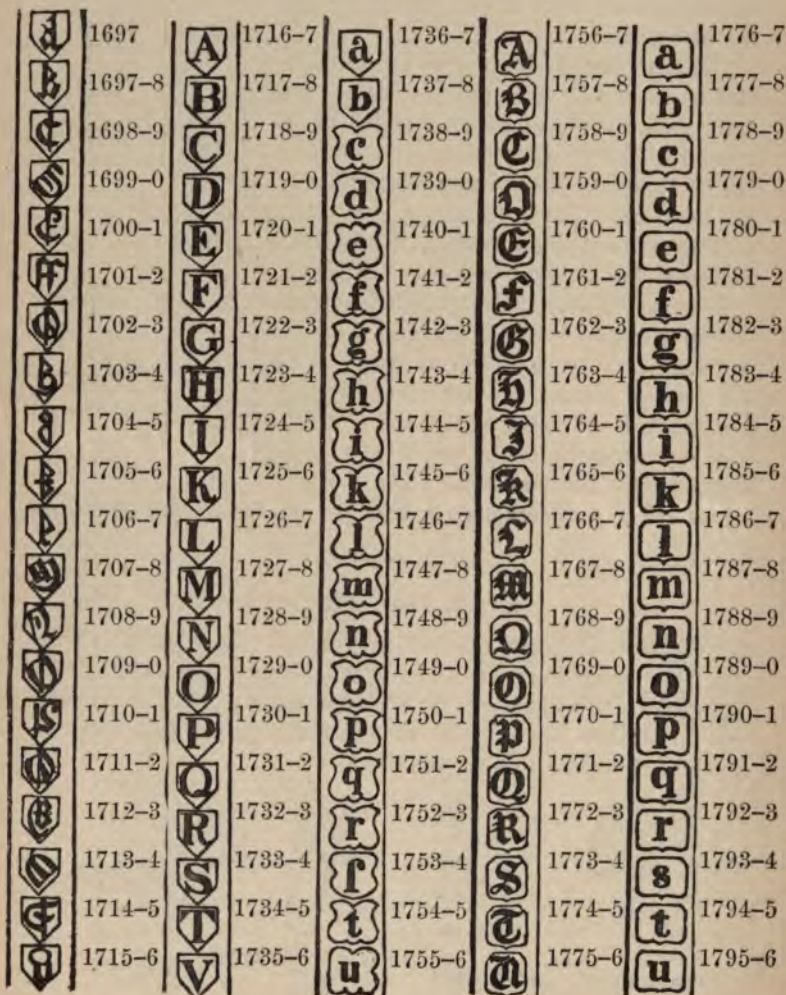 1697 A 1716–7 a 1736–7 A 1756–7 a 1776–7
1697–8 B 1717–8 b 1737–8 B 1757–8 b 1777–8
1698–9 C 1718–9 c 1738–9 C 1758–9 c 1778–9
1699–0 D 1719–0 d 1739–0 D 1759–0 d 1779–0
1700–1 E 1720–1 e 1740–1 E 1760–1 e 1780–1
1701–2 F 1721–2 f 1741–2 F 1761–2 f 1781–2
1702–3 G 1722–3 g 1742–3 G 1762–3 g 1782–3
1703–4 H 1723–4 h 1743–4 H 1763–4 h 1783–4
1704–5 I 1724–5 i 1744–5 I 1764–5 i 1784–5
1705–6 K 1725–6 k 1745–6 K 1765–6 k 1785–6
1706–7 L 1726–7 l 1746–7 L 1766–7 l 1786–7
1707–8 M 1727–8 m 1747–8 M 1767–8 m 1787–8
1708–9 N 1728–9 n 1748–9 N 1768–9 n 1788–9
1709–0 O 1729–0 o 1749–0 O 1769–0 o 1789–0
1710–1 P 1730–1 p 1750–1 P 1770–1 p 1790–1
1711–2 Q 1731–2 q 1751–2 Q 1771–2 q 1791–2
1712–3 R 1732–3 r 1752–3 R 1772–3 r 1792–3
1713–4 S 1733–4 ſ 1753–4 S 1773–4 s 1793–4
1714–5 T 1734–5 t 1754–5 T 1774–5 t 1794–5
1715–6 V 1735–6 u 1755–6 U 1775–6 u 1795–6